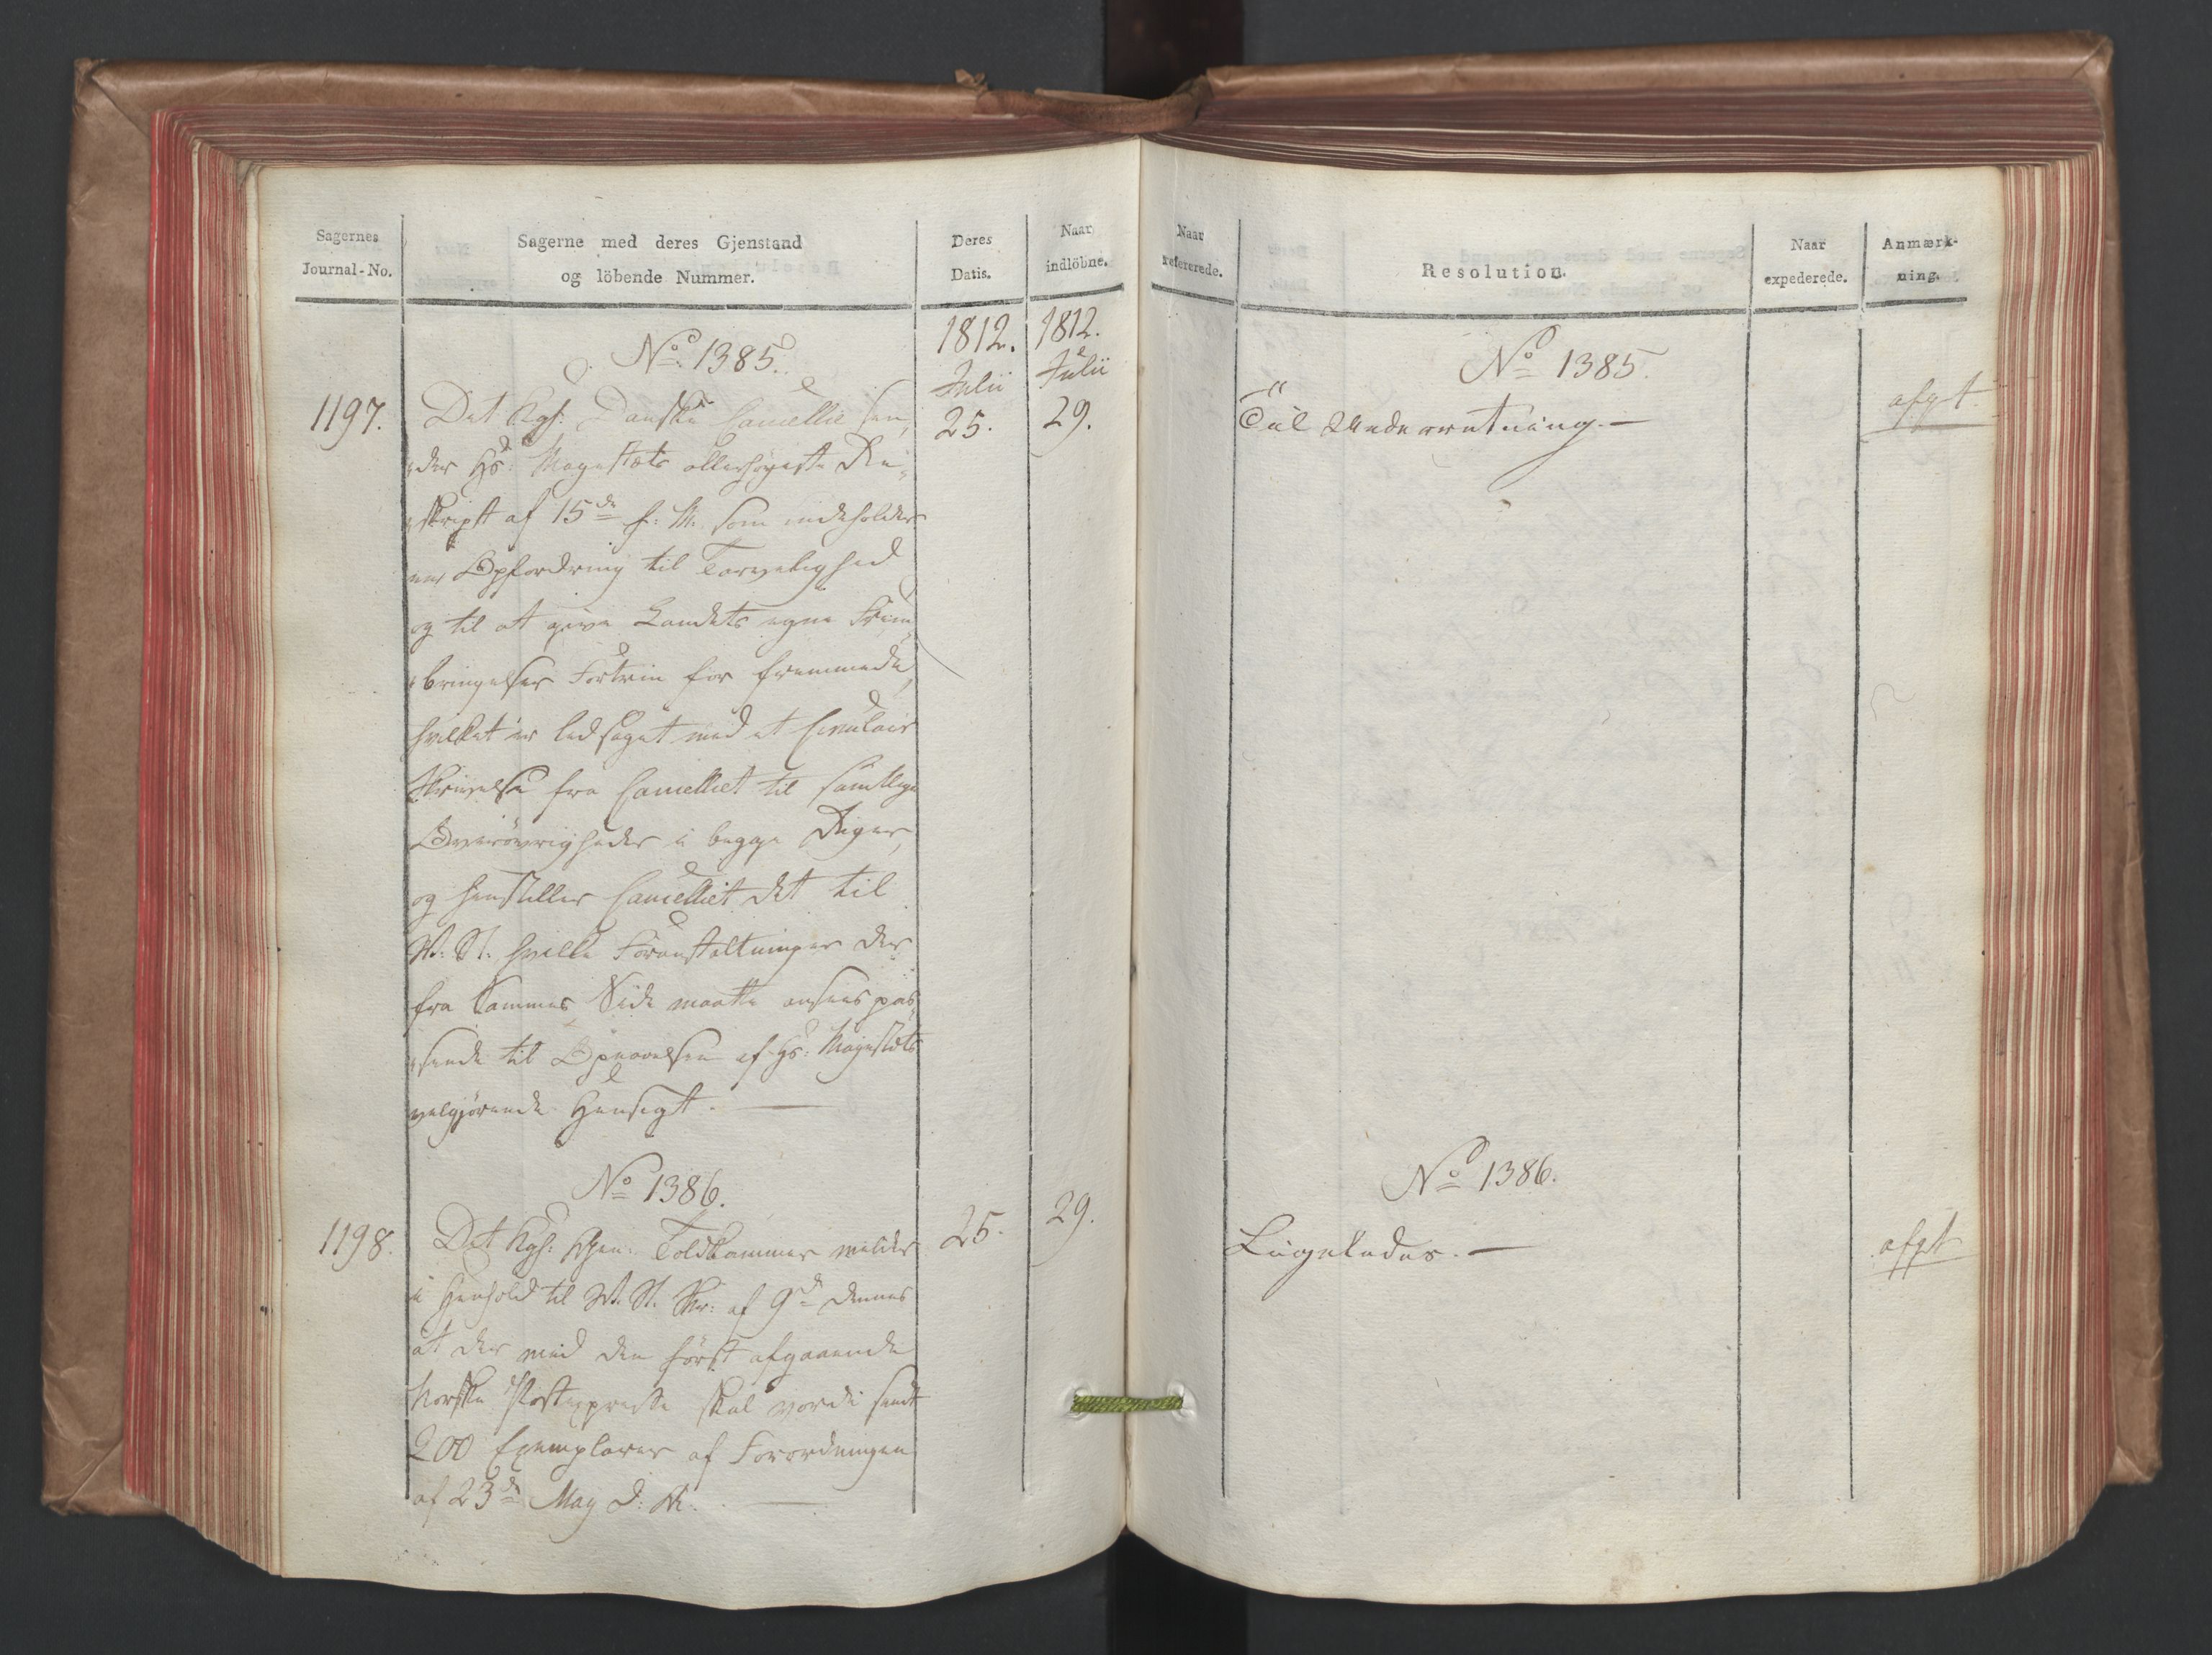 Sagernes
Journal-No.
Sagerne med deres Gjenstand
og löbende Nummer.
Deres
Datis.
Naar
indlöbne.
1812.
Julii
1812.
Julii
No. 1385.
1197.
Det kgl: Danske Cancellie sen-
25.
29.
der Hs: Majestæts allerhöieste Re-
skript af 15de f: M. som indeholder
en Opfordring til Tarvelighed
og til at give Landets egne Frem-
bringelser Fortrin for fremmede,
hvilket er ledsaget med et Circulair
Skrivelse fra Cancelliet til samtlige
Overövrigheder i begge Riger,
og henstiller Cancelliet det til
hvilke Foranstaltninger der
fra sammes Side maatte ansees pas-
sende til Opnaaelsen af Hs: Majestæts
velgjörende Hensigt. —
No 1386.
1198.
Det kgl: Gen: Toldkammer melder
25.
29.
i Henhold til Skr: af 9de dennes
at der med den först afgaaende
Norske Postexpresse skal vorde sendt
200 Exemplarer af Forordningen
af 23de May d: A. —
Naar
refererede.
Resolution.
Naar
expederede.
Anmærk-
ning.
No 1385.
Til Underretning. —
afgt.
No 1386.
Ligeledes. —
afgt